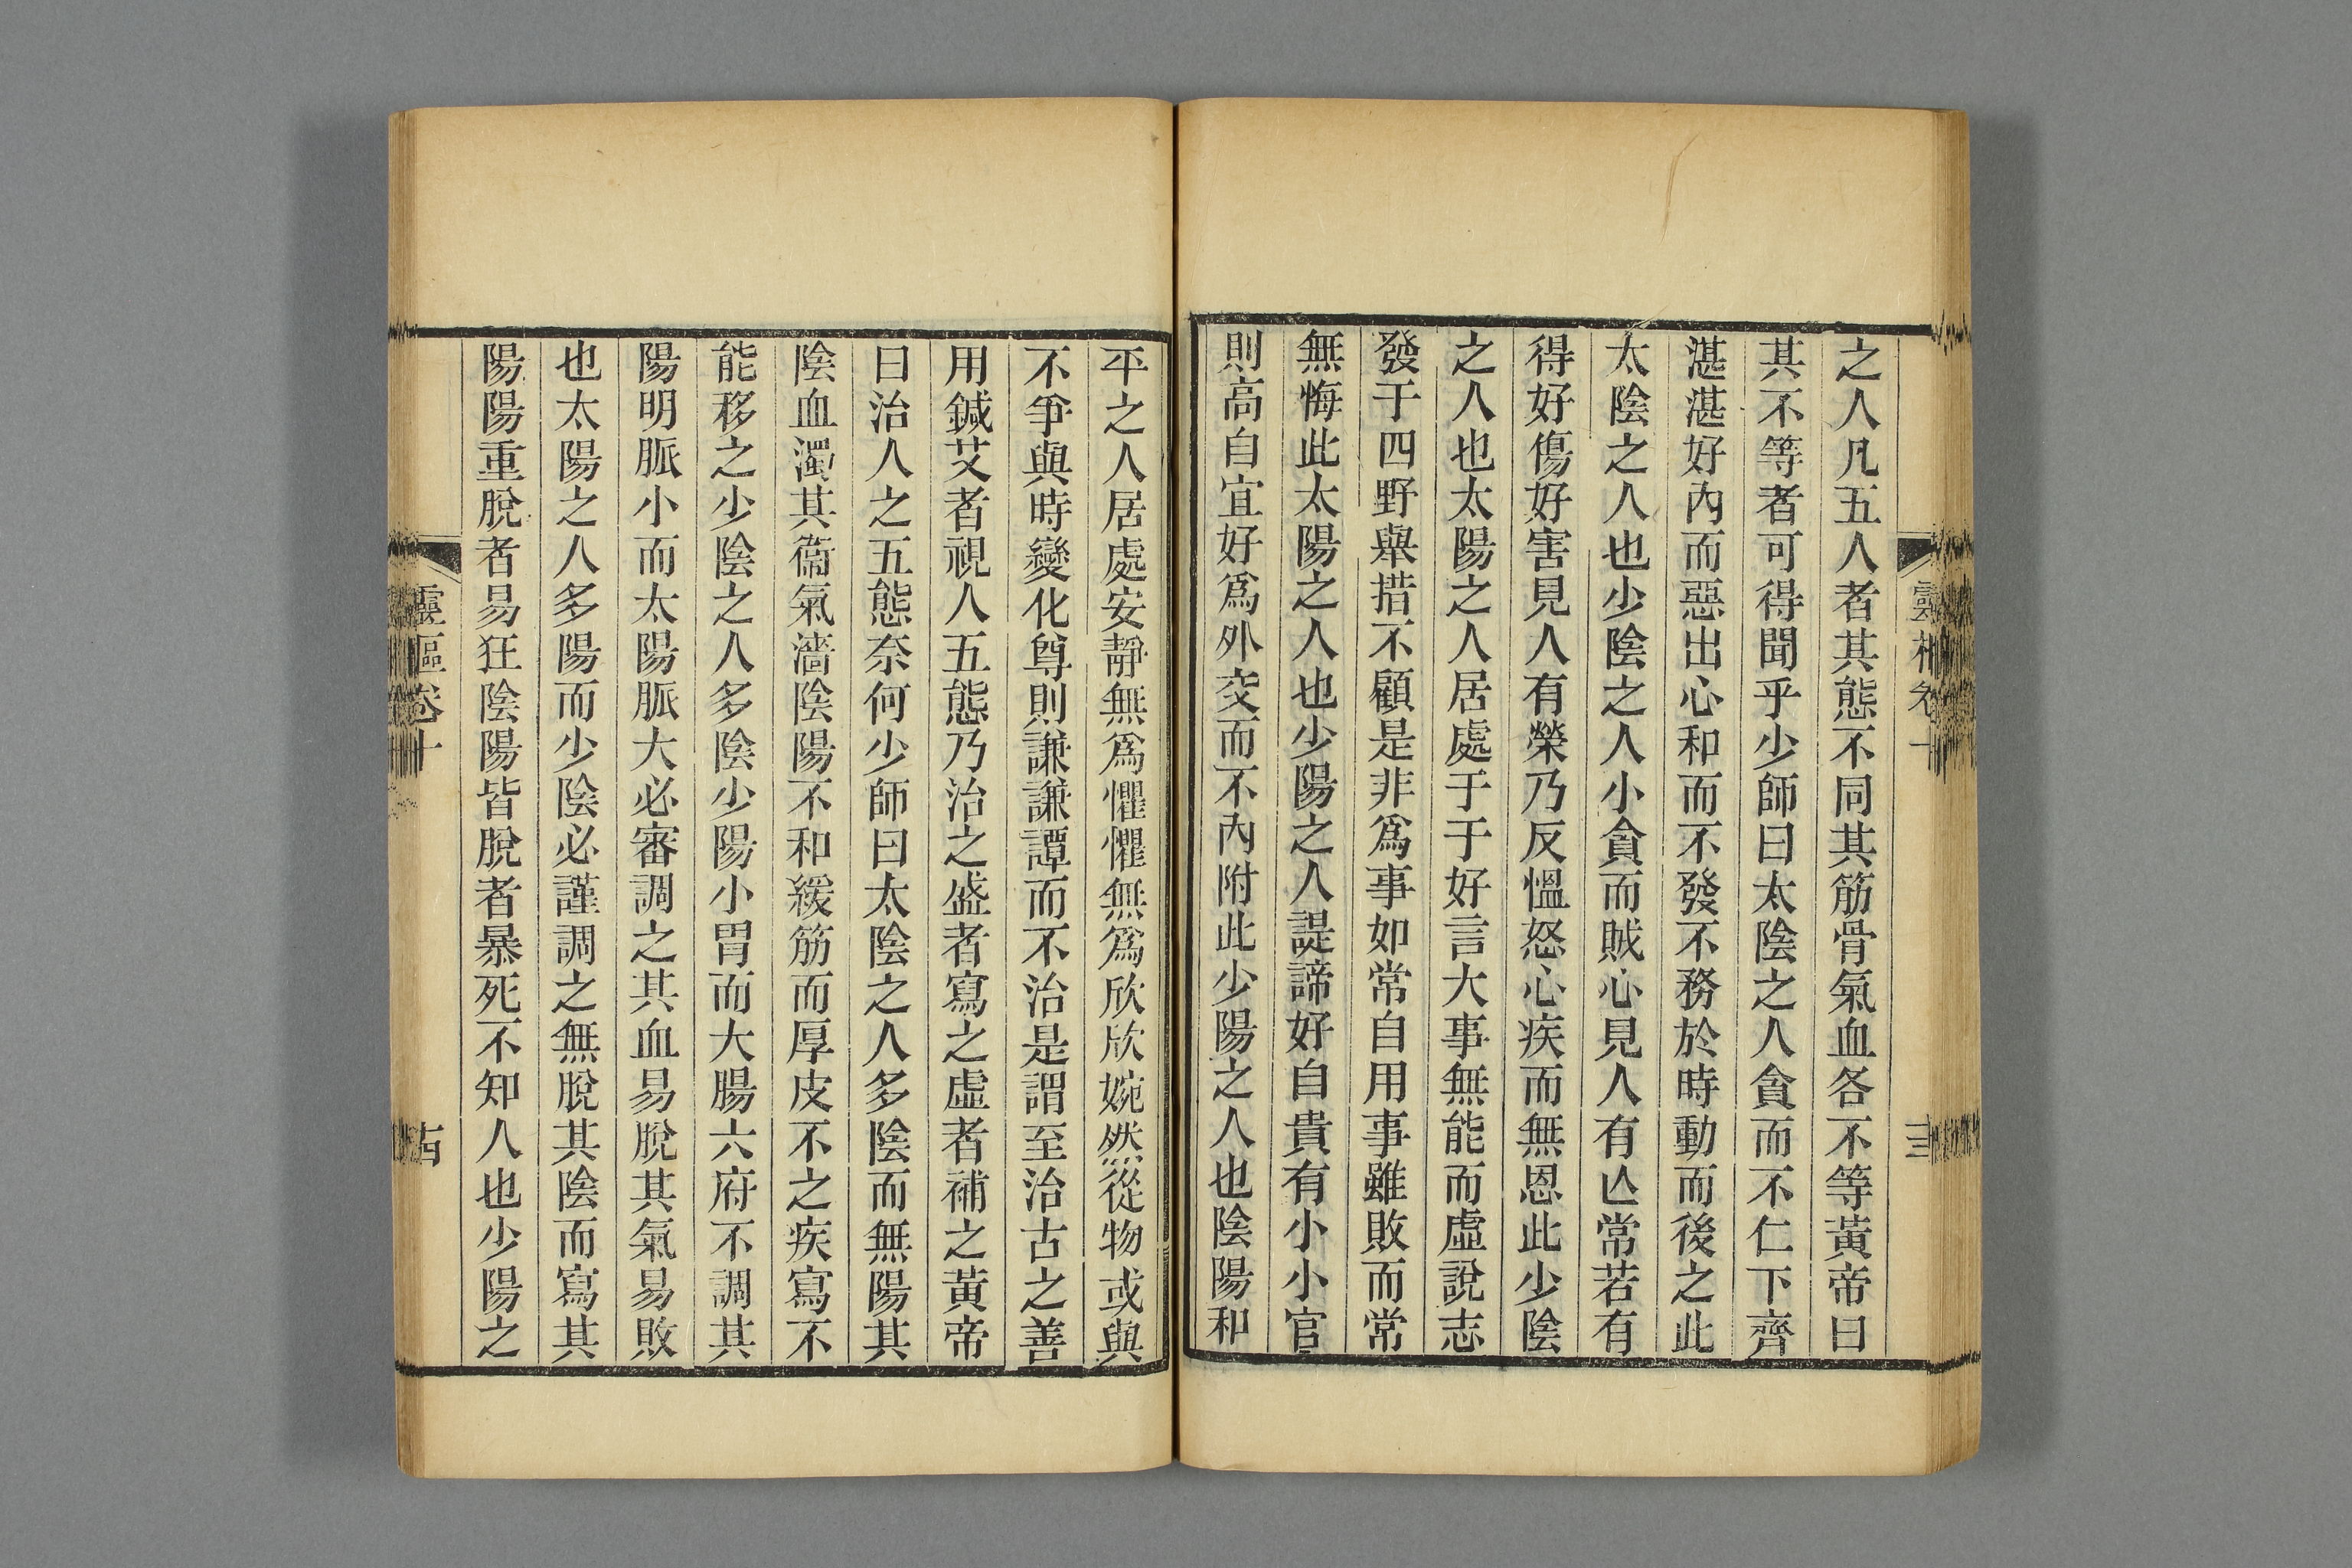 之人凡五人者其態不同其筋骨氣血各不等黃帝曰
其不等者可得聞乎少師曰太陰之人貪而不仁下齊
湛湛好內而惡出心和而不發不務於時動而後之此
太陰之人也少陰之人小貪而賊心見人有亾常若有
得好傷好害見人有榮乃反慍怒心疾而無恩此少陰
之人也太陽之人居處于于好言大事無能而虛說志
發于四野舉措不顧是非爲事如常自用事雖敗而常
無悔此太陽之人也少陽之人諟諦好自貴有小小官
則高自宜好爲外交而不內附此少陽之人也陰陽和
平之人居處安靜無爲懼懼無爲欣欣婉然從物或與
不爭與時變化尊則謙謙譚而不治是謂至治古之善
用鍼艾者視人五態乃治之盛者寫之虛者補之黃帝
曰治人之五態奈何少師曰太陰之人多陰而無陽其
陰血濁其衞氣濇陰陽不和緩筋而厚皮不之疾寫不
能移之少陰之人多陰少陽小胃而大腸六府不調其
陽明脈小而太陽脈大必審調之其血易脫其氣易敗
也太陽之人多陽而少陰必謹調之無脫其陰而寫其
陽陽重脫者易狂陰陽皆脫者暴死不知人也少陽之
靈樞卷十